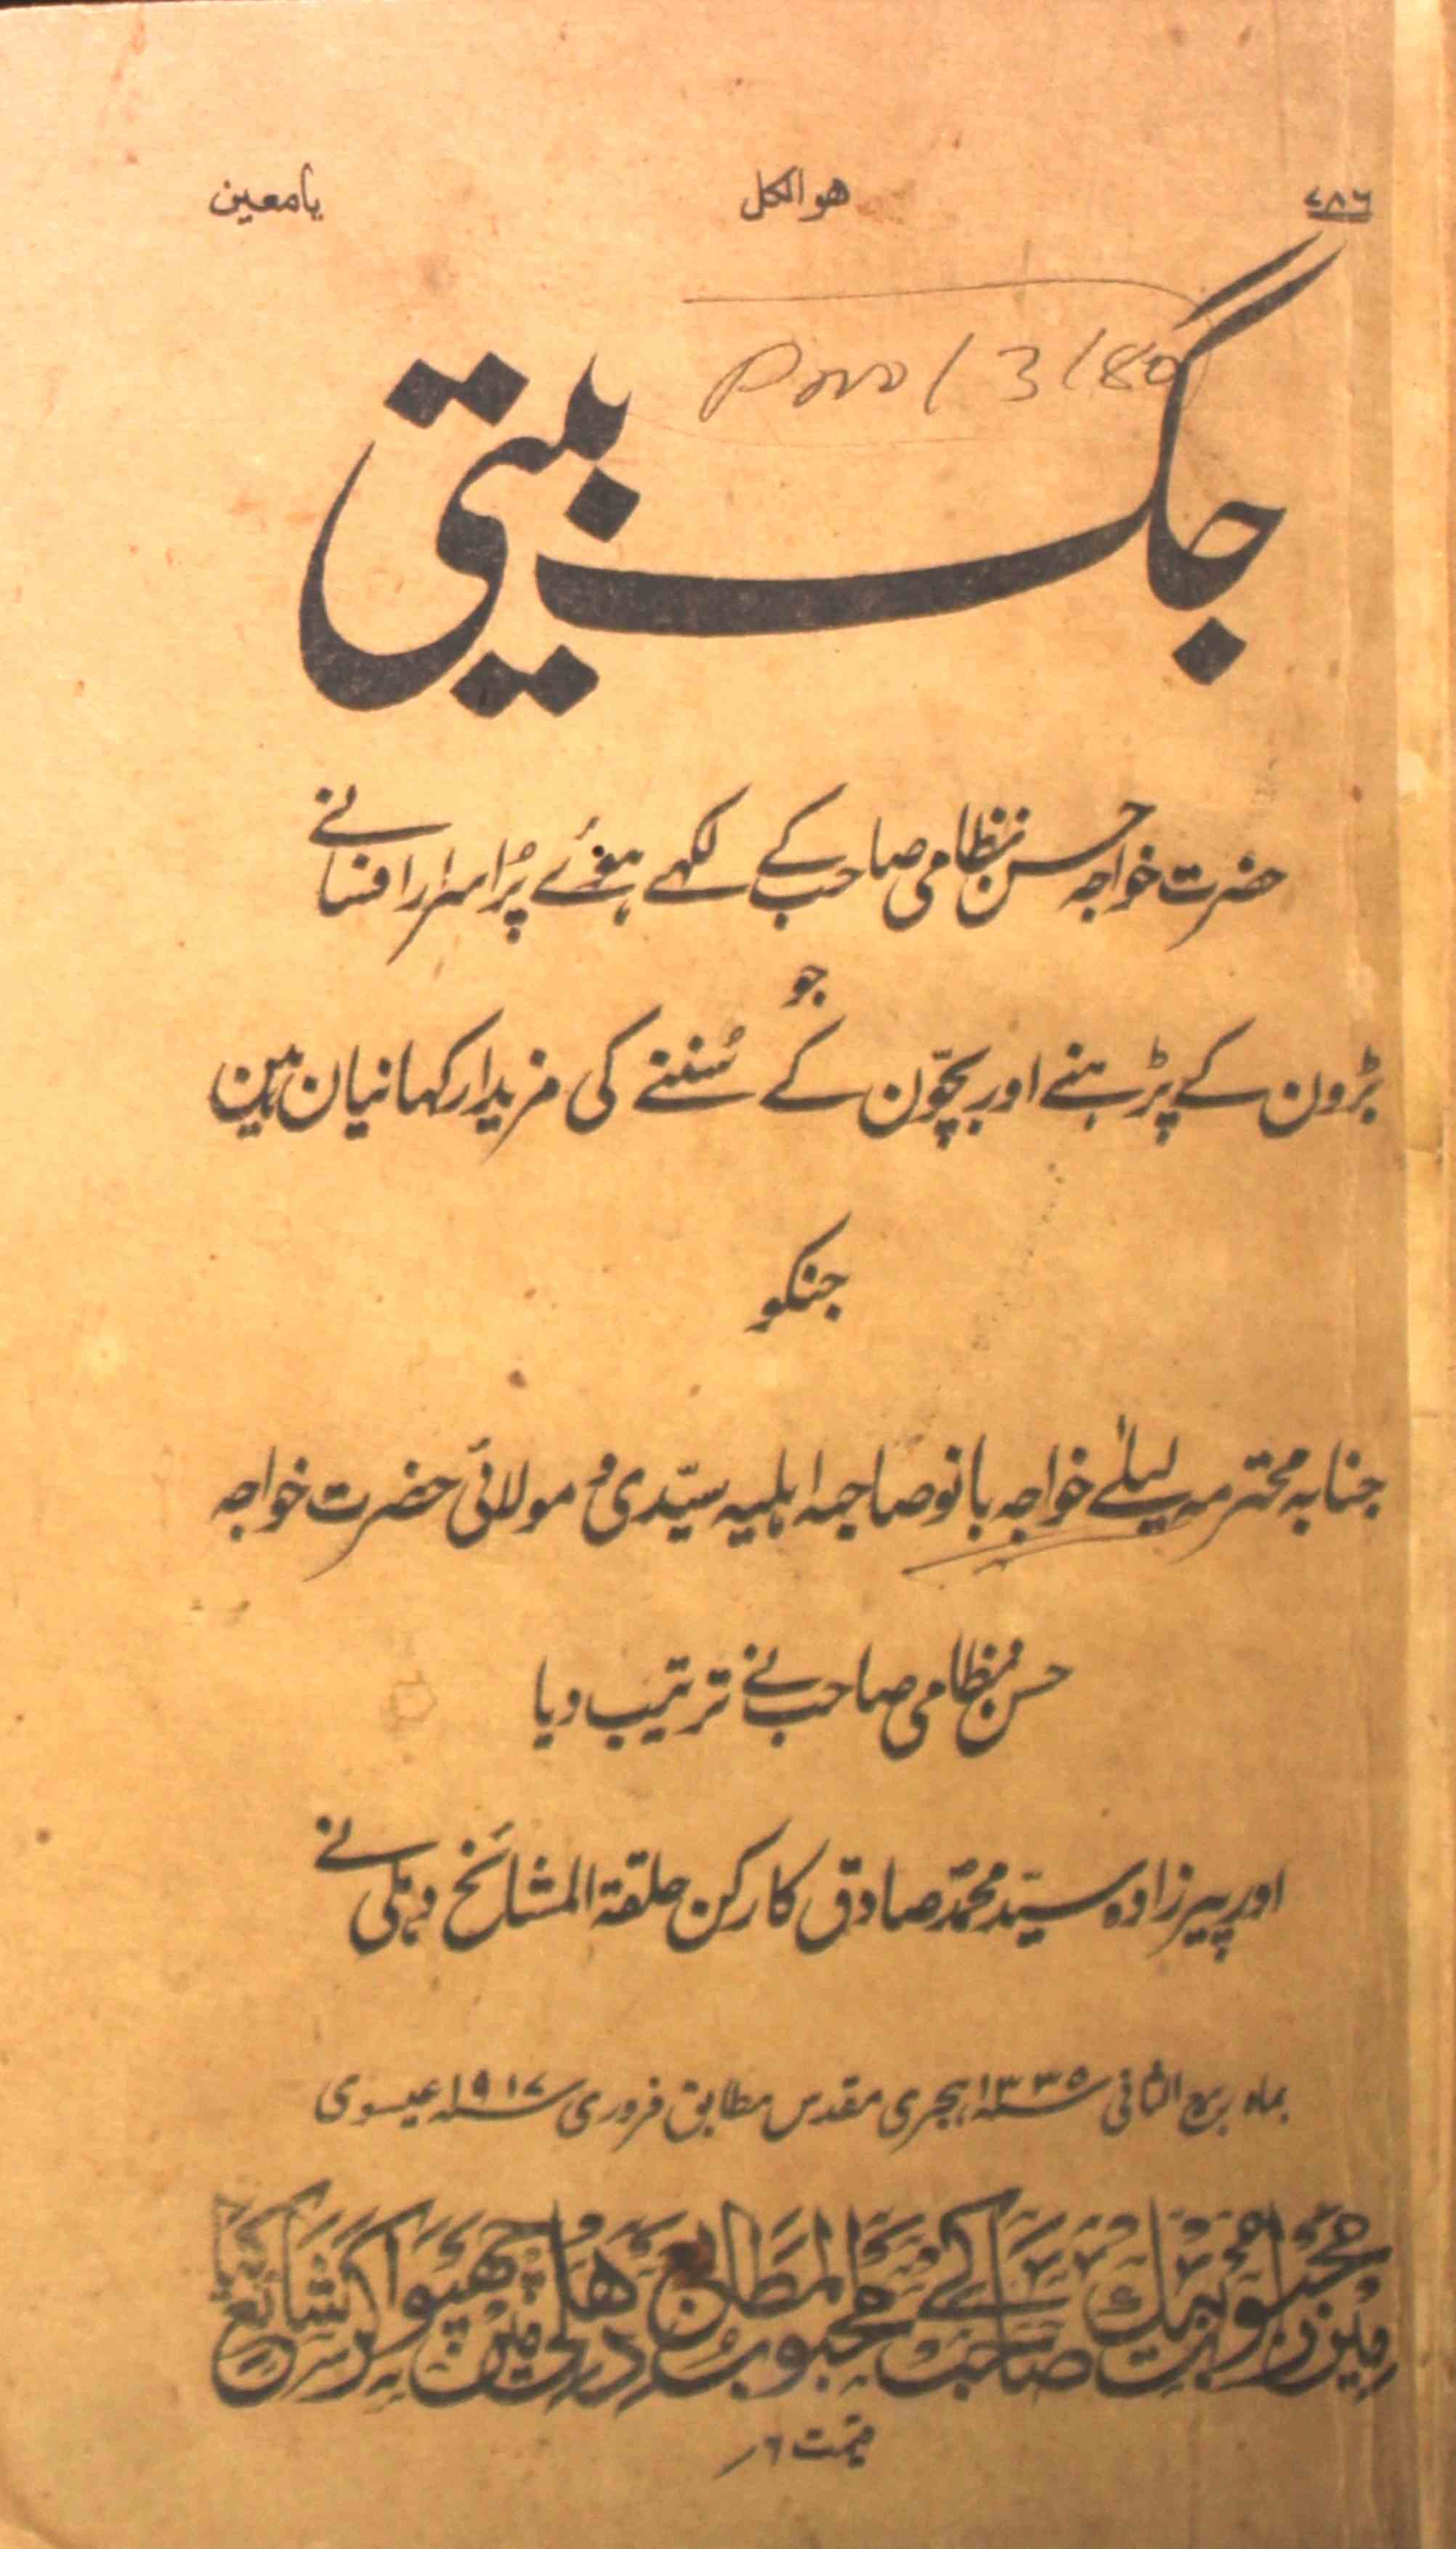 ۷۸۶ ھوالکل یا معین
جگ بیتی
حضرت خواجہ حسن نظامی صاحب کے لکھے ہوئے پُراسرار افسانے
جو
بڑون کے پڑہنے اور بچّون کے سُننے کی مزیدار کہانیان ہین
جنکو
جنابہ محترمہ لیلےٰ خواجہ بانو صاحبہ اہلیہ سیّدی و مولائی حضرت خواجہ
حسن نظامی صاحب نے ترتیب دیا
اور پیرزادہ سیّد محمدؐ صادق کارکن حلقۃ المشائخ دہلی نے
بماہ ربیع الثانی ۱۳۳۵ ہجری مقدس مطابق فروری ۱۹۱۷ عیسوی
محبوب بیگ صاحب کے محبوب المطابع دھلی مین چھپوا کر شائع
قیمت ۶؍